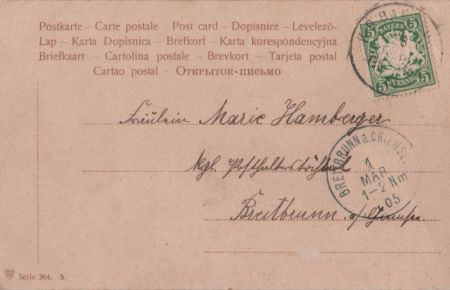 Postkarte – Carte postale – Post card – Dopisnice – Levelező-
Lap – Karta Dopisnica – Brefkort – Karta korespondencyjna
Briefkaart – Cartolina postale – Brevkort – Tarjeta postal
Cartao postal – Открытое-письмо
BAYERN
5 5
PFENNIG
Fräulein Marie Hamberger
Kgl. Posthalterstochter
Breitbrunn a/Chiemsee
BREITBRUNN a. CHIEMS
1
MÄR
1-2 Nm
05.
Serie 364. 5.